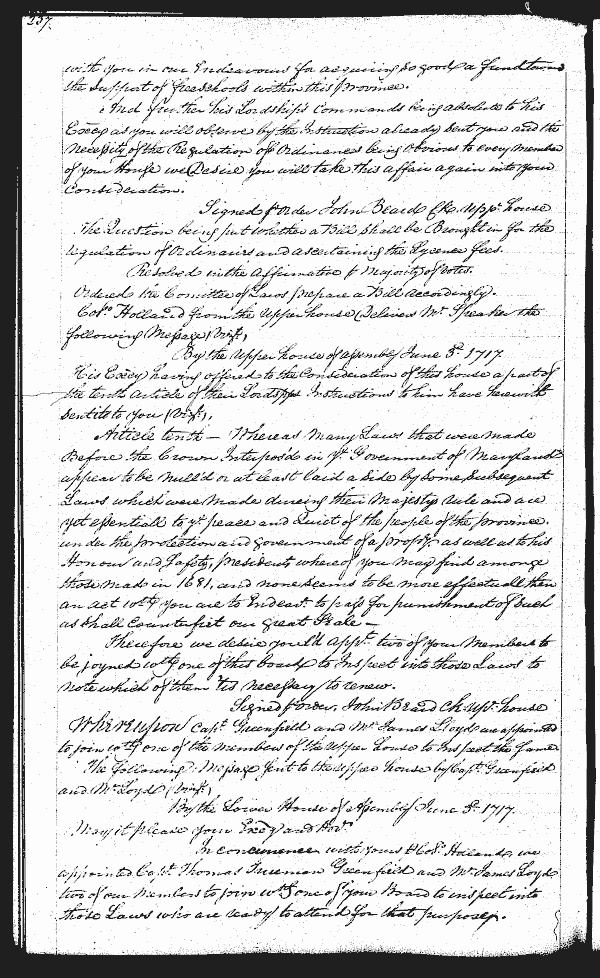 237.
with you in our Endeavours for acquiring so good a fund towards
the support of freeschools within this Province.
And further his Lordships Commands being absolute to his
Excey as you will observe by the Instruction already sent you and the
necessity of the Regulation of Ordinances being Obvious to every member
of your House we Desire you will take this affair again into your
Consideration.
Signed p Order John Beard Clk. Uppr. house
The Question being put whether a Bill shall be Brought in for the
regulation of Ordinairs and ascertaining the Lycence fees.
Resolved in the affirmative p Majority of Votes.
Ordered the Comittee of Laws prepare a Bill accordingly.
Colo. Holland from the Upper house Delivers Mr. Speaker the
following Message Vizt,
By the Upper house of assembly June 3d. 1717.
His Excey having offered to the Consideration of this house a part of
the tenth article of their Lordspps Instructions to him have herewith
sent it to you Vizt,
Article tenth — Whereas Many Laws that were made
Before the Crown Interpos'd in ye Government of Maryland
appear to be null'd or at least laid a side by some Subsequent
Laws which were made dureing their Majestys rule and are
yet essentiall to ye peace and Quiet of the people of the province.
under the protection and government of a propry. as well as to his
Honour and Safety, presidents whereof you may find amonge
those made in 1681, and none seems to be more effectuall then
an act wch you are to Endeavr. to pass for punishment of Such
as shall Counterfiet our great Seale —
Therefore we desire you'ld appt. two of your Members to
be joyned wth one of this board to Inspect into those Laws to
note which of them 'tis necessary to renew.
Signed p order, John Beard Clk. Upr. house
Whereupon Capt. Greenfield and Mr. James Lloyd are appointed
to join wth one of the members of the Upper House to Inspect the Same
The following Message sent to the upper house by Capt. Greenfield
and Mr. Loyd (Vizt)
By the Lower House of assembly June 3d. 1717.
May it please your Excy and Honrs.
In concurrence with yours p Colo. Holland we
appointed Capt. Thomas Trueman Greenfield and Mr. James Loyd
two of our members to join wth one of your Board to inspect into
those Laws who are ready to attend for that purpose.